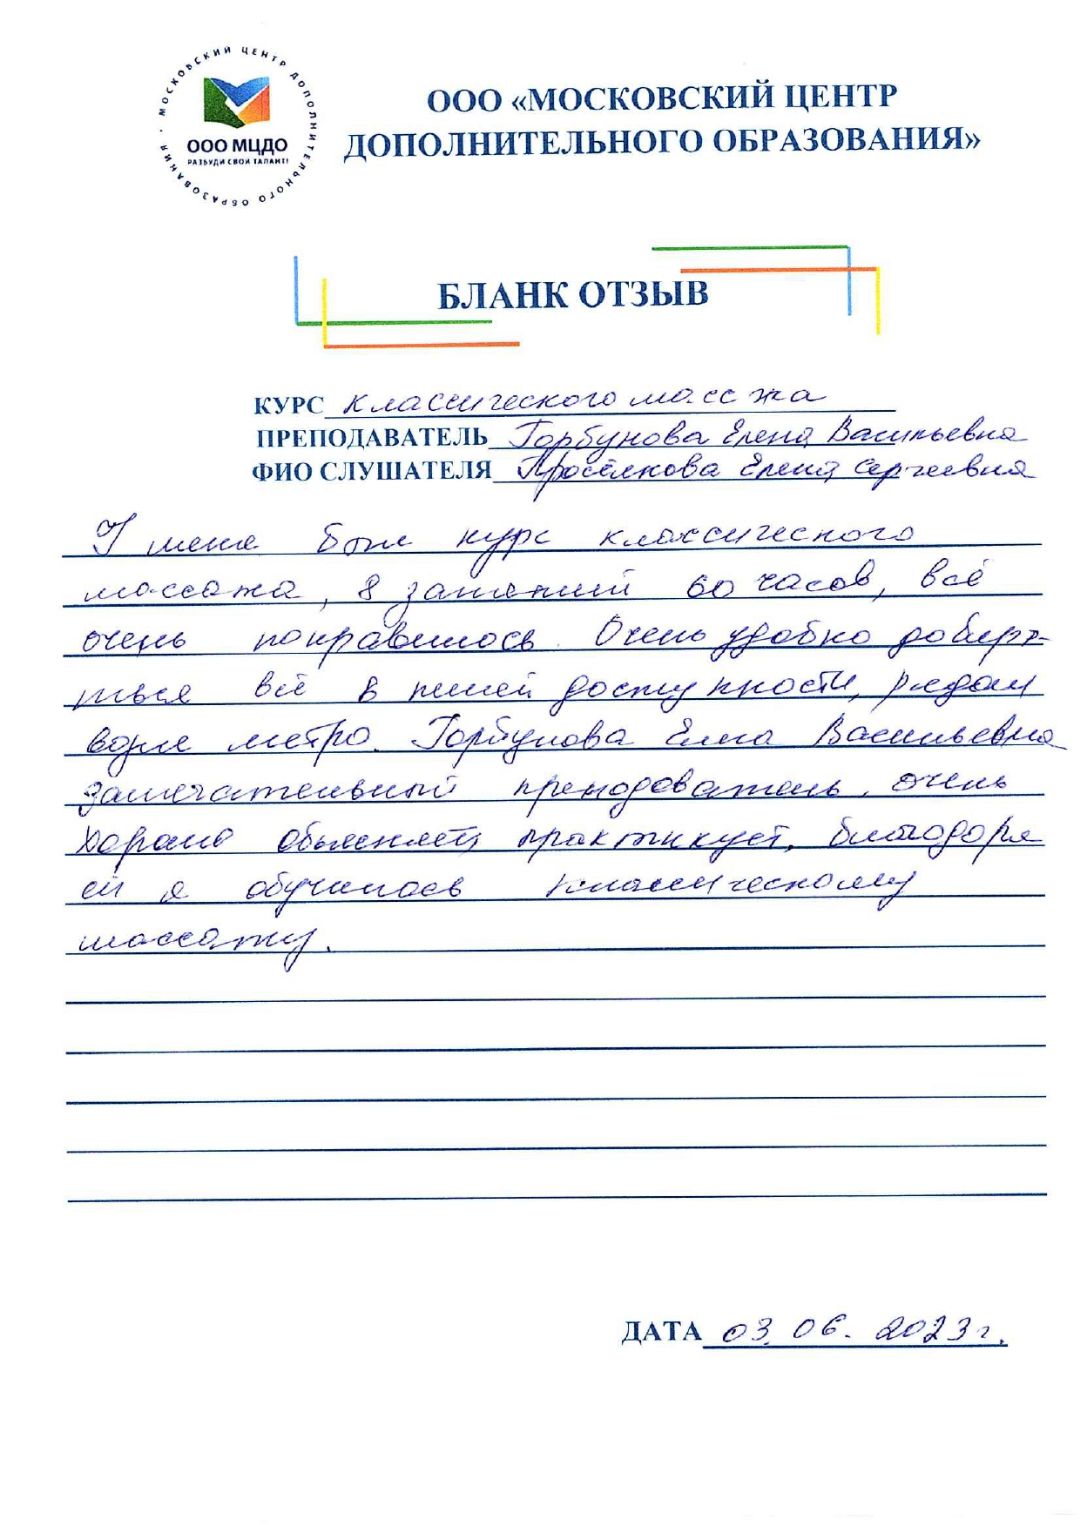 МОСКОВСКИЙ ЦЕНТР ДОПОЛНИТЕЛЬНОГО ОБРАЗОВАНИЯ
ООО МЦДО
РАЗБУДИ СВОЙ ТАЛАНТ!
ООО «МОСКОВСКИЙ ЦЕНТР
ДОПОЛНИТЕЛЬНОГО ОБРАЗОВАНИЯ»
БЛАНК ОТЗЫВ
КУРС классического массжа
ПРЕПОДАВАТЕЛЬ Горбунова Елена Васильевна
ФИО СЛУШАТЕЛЯ Проселкова Елена Сергеевна
У меня был курс классического
массажа, 8 занятий 60 часов, всё
очень понравилось. Очень удобно добира-
ться всё в пешей доступности, рядом
возле метро. Горбунова Елена Васильевна
замечательный преподователь, очень
хорошо объясняет, практикует, благодоря
ей я обучилась классическому
массажу.
ДАТА 03.06.2023 г.